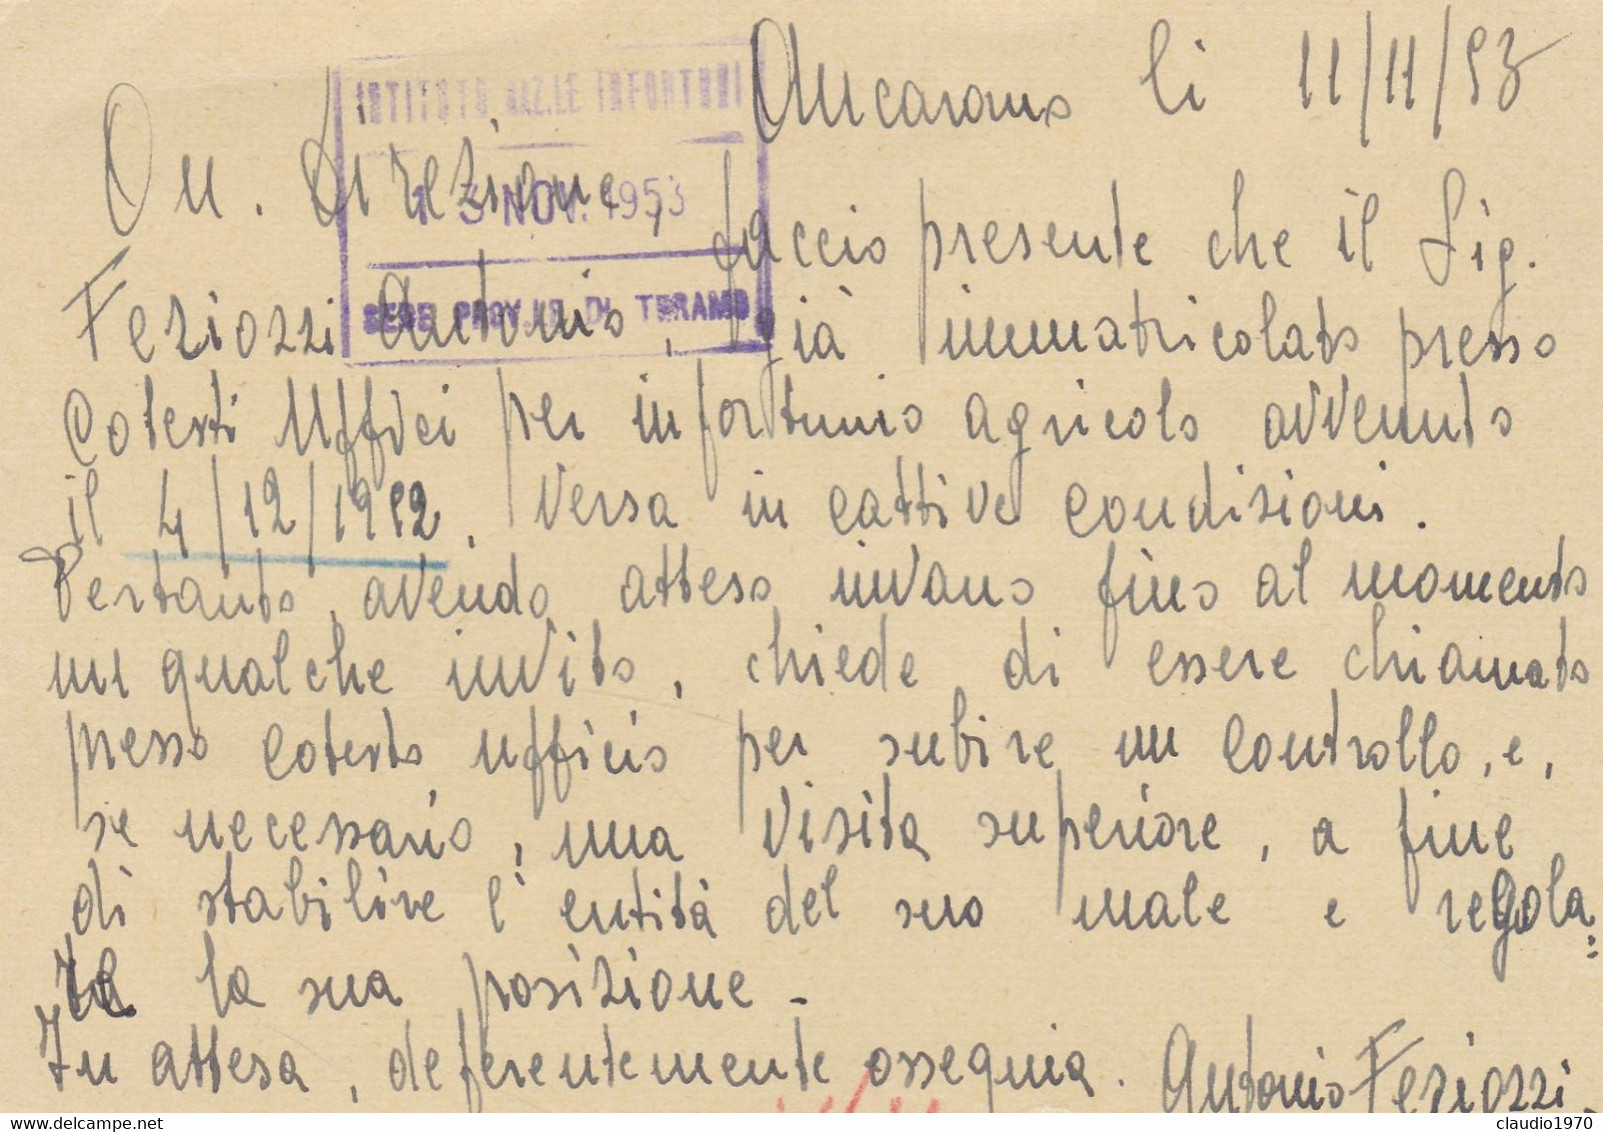 Ancarano li 11/11/53
ISTITUTO NAZ.LE INFORTUNI
On. Direzione,
13 NOV. 1953
faccio presente che il Sig.
SEDE PROV.LE DI TERAMO
Feriozzi Antonio, già immatricolato presso
Cotesti Uffici per infortunio agricolo avvenuto
il 4/12/1952, versa in cattive condizioni.
Pertanto, avendo atteso invano fino al momento
un qualche invito, chiede di essere chiamato
presso cotesto ufficio per subire un controllo, e,
se necessario, una visita superiore, a fine
di stabilire l'entità del suo male e regola=
re la sua posizione -
In attesa, deferentemente ossequia. Antonio Feriozzi.
claudio1970
WWW.DELCAMPE.NET